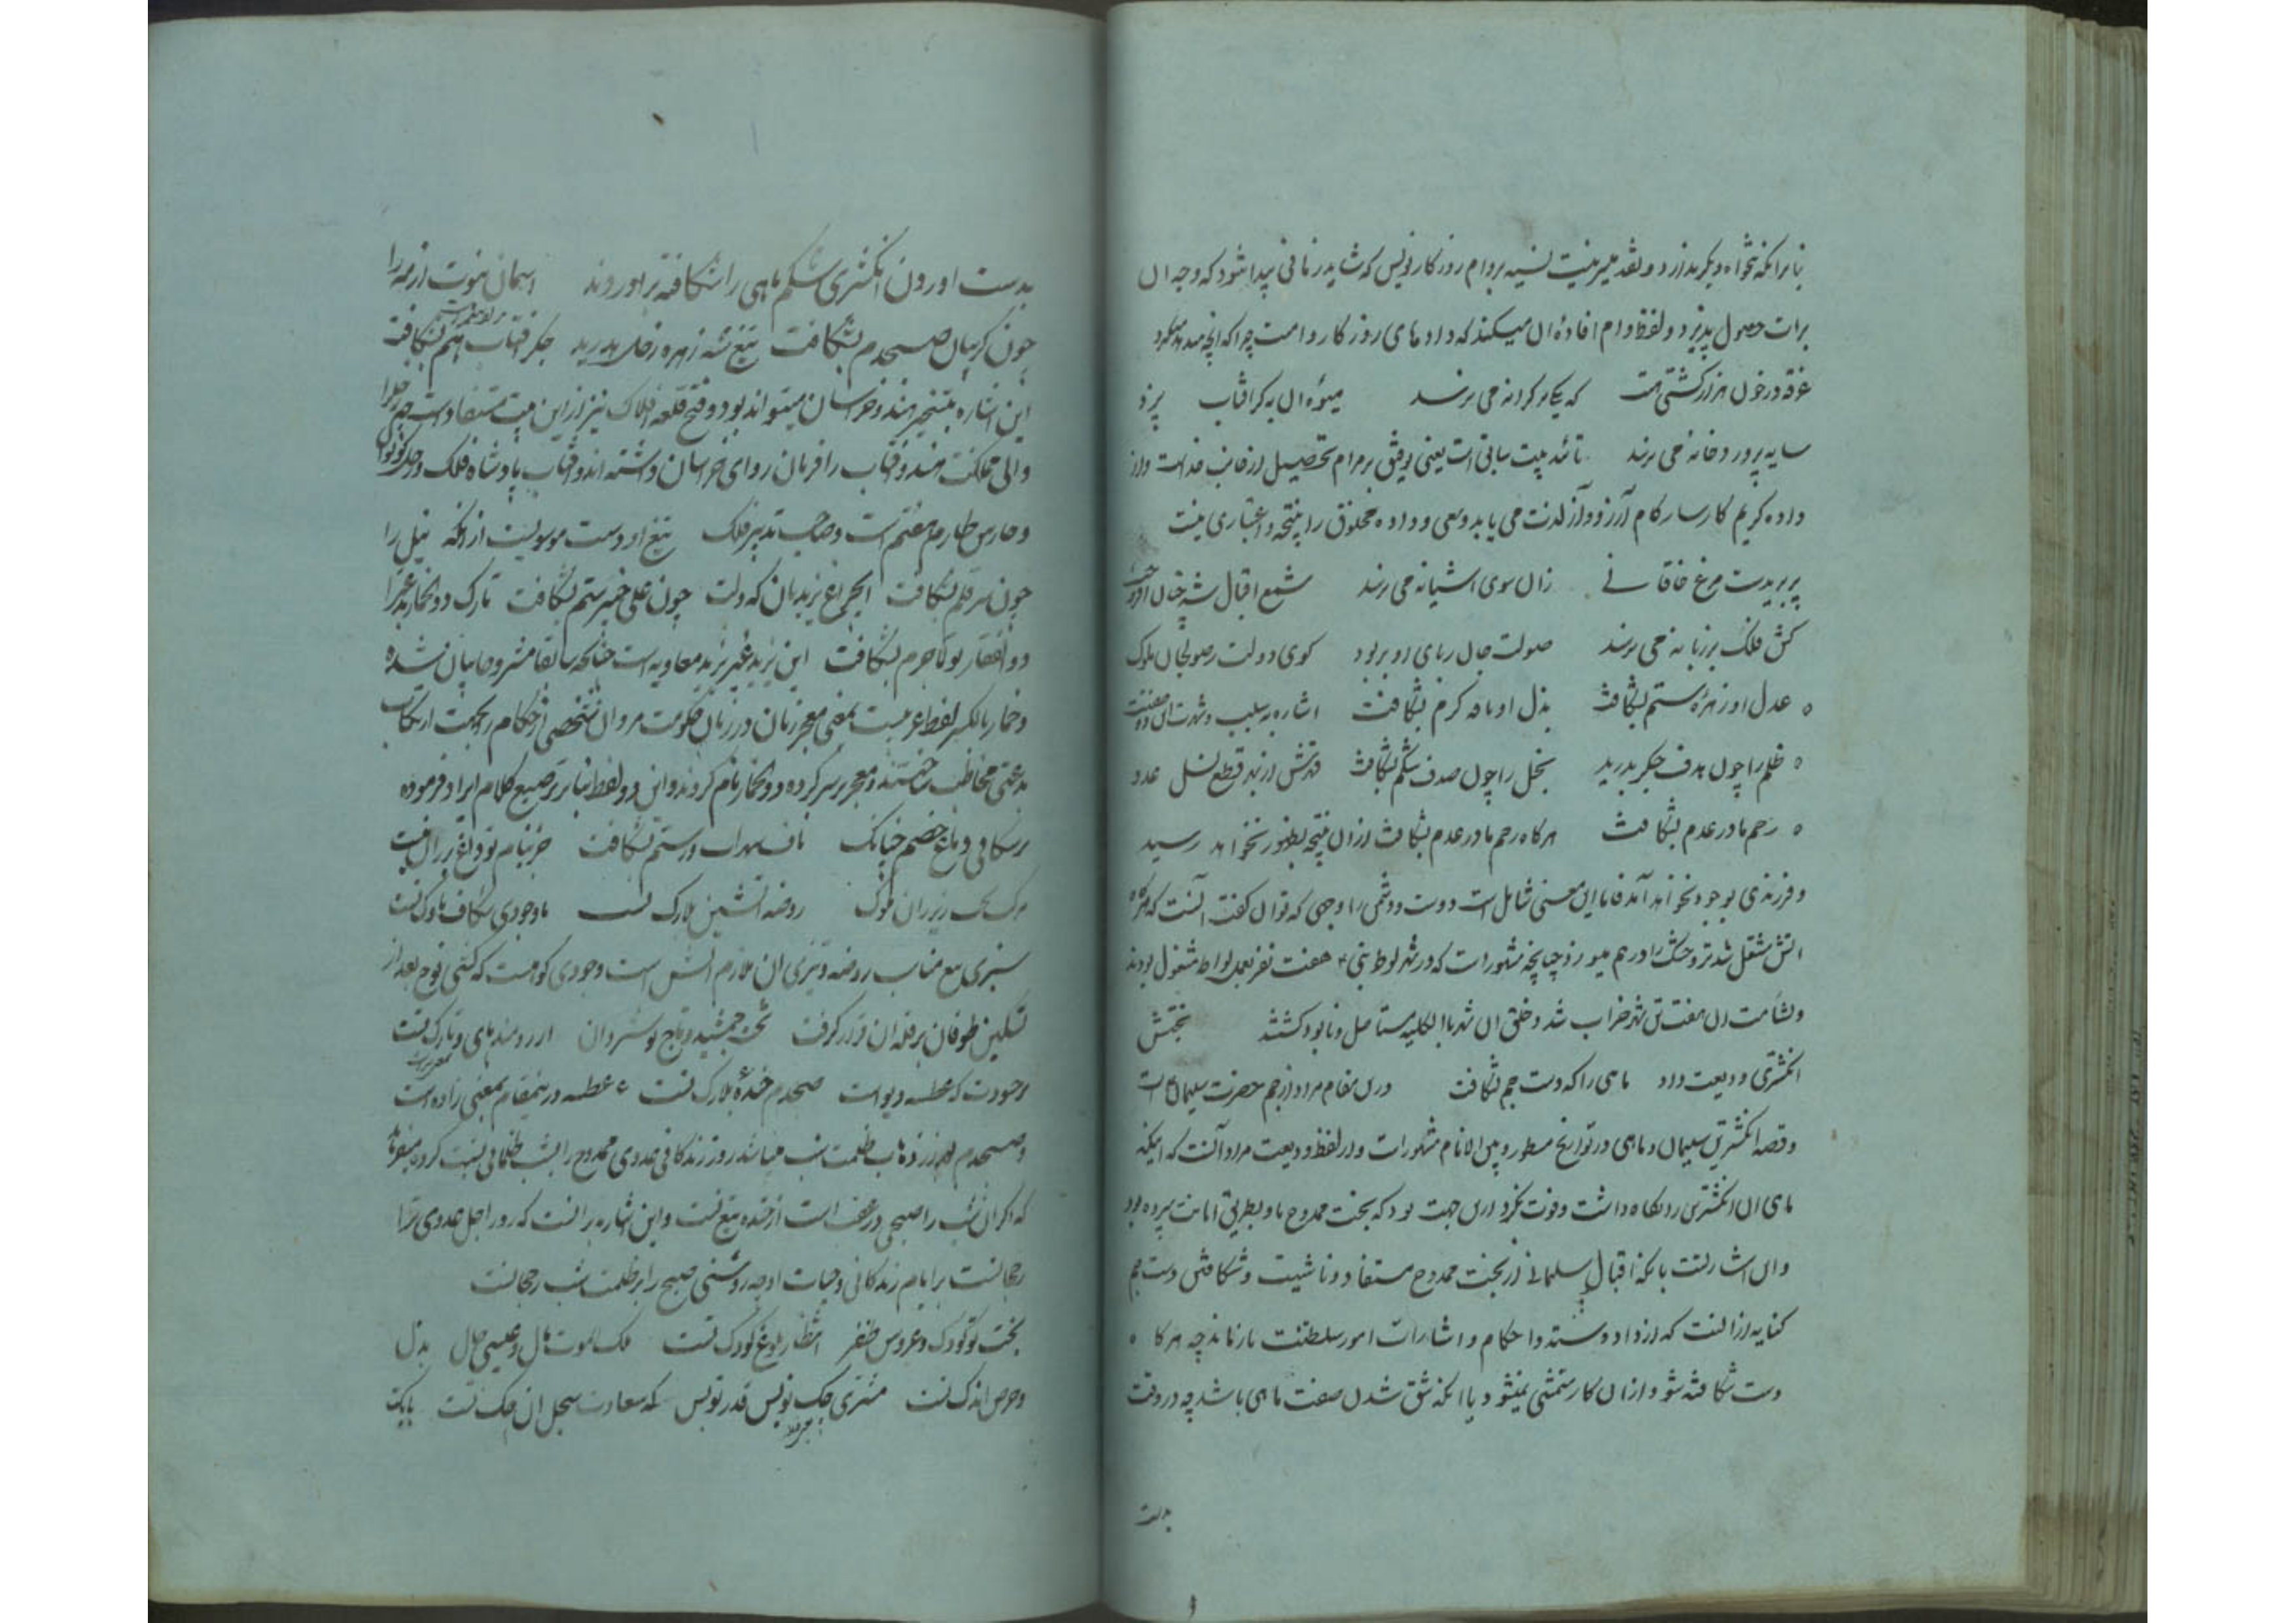 بنابرانکه نخواه دیکر ندارد و نقد میسر نیست نسیه بروام روزکار نویس که شاید زمانی پیدا شود که وجه ان
برات حصول پذیرد و لفظ وام افاده ان میکند که داد های روزکار وامست چرا که انچه میدهد میکرد
غرقه در خون هزار کشتی هست که یکی بر کرانه می نرسد میوه ان به کز افتاب پزد
سایه پرورد خانه می نرسد تائید بیت سابق است یعنی توفیق بر مرام تحصیل از جانب خداست و از
داده کریم کارساز کام آرزو و آز لذت می یابد و سعی و داده مخلوق را نتیجه و اعتباری نیست
پر بریدست مرغ خاقانی زان سوی اشیانه می نرسد شمع اقبال شه چنان افروخت
کش فلک بر زبانه می نرسد صولت جان ربای او بربود کوی دولت ز صولجان ملوک
عدل او زهره ستم بشکافت بذل او نافه کرم بشکافت اشاره به سلب و شهرت ان دو صفتست
ظلم را چون هدف جکر بدرید بخل را چون صدف شکم بشکافت قدرتش از پی قطع نسل عدو
رحم مادر عدم بشکافت هرکاه رحم مادر عدم بشکافت ازان نتیجه بظهور نخواهد رسید
و فرزندی بوجود نخواهد آمد فاما این معنی شامل است دوست و دشمن را وجهی که توان کفت انست که هرکاه
اتش مشتعل شد تر و خشک را در هم میسوزد چنانچه مشهور است که در شهر لوط نبی ع هفت نفر بعمل لواط مشغول بودند
و بشامت ان هفت تن شهر خراب شد و خلق ان شهر باالکلیه مستاصل و نابود کشتند بختش
انکشتری ودیعت داد ماهی را که دست جم بشکافت درین مقام مراد از جم حضرت سلیمان ع است
و قصه انکشترین سلیمان و ماهی در تواریخ مسطور و بین الانام مشهور است و از لفظ ودیعت مراد آنست که اینکه
ماهی ان انکشترین را نکاه داشت و فوت نکرد ازین جهت بود که بخت ممدوح باو بطریق امانت سپرده بود
و این اشارتست بانکه اقبال سلیمانی از بخت ممدوح مستفاد و ناشیست و شکافتن دست جم
کنایه از انست که از داد و ستد و احکام و اشارات امور سلطنت باز ماند چه هرکاه
دست شکافته شود ازان کار متمشی نمیشود یا انکه شق شدن صفت ماهی باشد چه در وقت
بدست
بدست اوردن انکشتری شکم ماهی را شکافته براوردند اسمان نبوت ازهر را
چون کریبان صبحدم بشکافت تیغ شه زهره زحل بدرید جکر افتاب هم بشکافت
این اشاره بتسخیر هند و خراسان میتواند بود و فتح قلعه افلاک نیز ازین بیت مستفاد است چه زحل را
والی مملکت هند و افتاب را فرمان روای خراسان داشته اند و افتاب پادشاه فلک و زحل کوتوال
و حارس طارم هفتم است و صاحب تدبیر فلک تیغ او دست موسویست ازانکه نیل را
چون سر قلم بشکافت بحمراغ یزیدیان که دولت چون علی خیبر ستم بشکافت تارک ذو الخمار بدعت را
ذوالفقار تو تا جرم بشکافت این یزید غیر یزید معاویه است چنانکه سابقا مشروحا بیان شده
و خمار بالکسر لفظ عربیست بمعنی معجر زنان در زمان حکومت مروان شخصی از حکام بجهت ارتکاب
بدعتی مخاطب ساختند و معجر بر سر کرده ذو الخمار نام کردند و این دو لفظ بنابر ترصیع کلام ایراد فرموده
بر شکافی دماغ خصم چنانک ناف سهراب رستم بشکافت جز بنام تو داغ بر ران نیست
مرکبی زیر ران ملوک روضه اتشین بلارک تست باد جودی شکاف ناوک تست
سبزی تیغ مناسب روضه و تیزی ان ملازم اتش است و جودی کوهست که کشتی نوح بعد از
تسکین طوفان بر قله ان قرار کرفت تخت جمشید و تاج نوشروان ارزومند پای و تارک تست
بر حسودت که عطسه دیو است صبحدم خنده بلارک تست عطسه درینمقام بمعنی زاده است
و صبحدم ذهاب ظلمت شب میباشد روز زندکانی عدوی ممدوح را بشب ظلمانی نسبت کرده میفرماید
که اکر ان شب را صبحی در عقب است از خنده تیغ تست و این اشاره بر انست که روز اجل عدوی ترا
رجحانست بر ایام زندکانی و حیات او چه روشنی صبح را بر ظلمت شب رجحانست
بخت تو کودک و عروس ظفر انتظار بلوغ کودک تست ملک الموت مال و عیسی حال بذل
و حرص اندک تست مشتری چک نویس قدر تو بس که سعادت سجل ان چک تست بابک